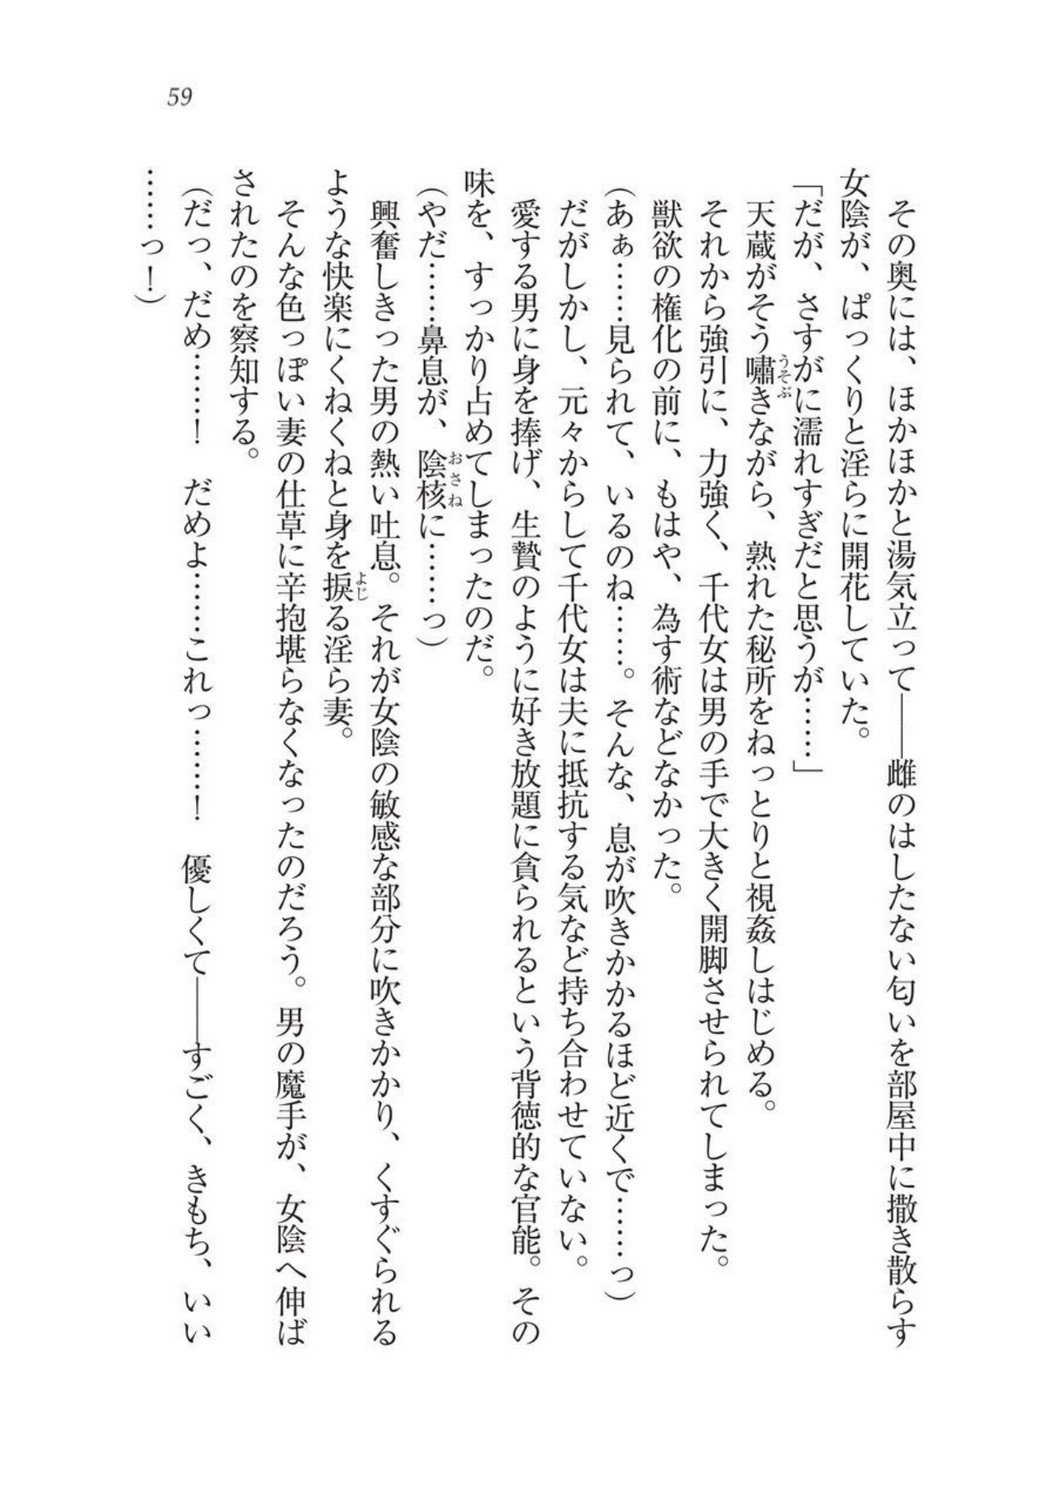 59
その奥には、ほかほかと湯気立って――雌のはしたない匂いを部屋中に撒き散らす
女陰が、ぱっくりと淫らに開花していた。
「だが、さすがに濡れすぎだと思うが……」
天蔵がそう嘯きながら、熟れた秘所をねっとりと視姦しはじめる。
うそぶ
それから強引に、力強く、千代女は男の手で大きく開脚させられてしまった。
獣欲の権化の前に、もはや、為す術などなかった。
（あぁ……見られて、いるのね……。そんな、息が吹きかかるほど近くで……っ）
だがしかし、元々からして千代女は夫に抵抗する気など持ち合わせていない。
愛する男に身を捧げ、生贄のように好き放題に貪られるという背徳的な官能。その
味を、すっかり占めてしまったのだ。
（やだ……鼻息が、陰核に……っ）
おさね
興奮しきった男の熱い吐息。それが女陰の敏感な部分に吹きかかり、くすぐられる
ような快楽にくねくねと身を捩る淫ら妻。
よじ
そんな色っぽい妻の仕草に辛抱堪らなくなったのだろう。男の魔手が、女陰へ伸ば
されたのを察知する。
（だっ、だめ……！　だめよ……これっ……！　優しくて――すごく、きもち、いい
……っ！）